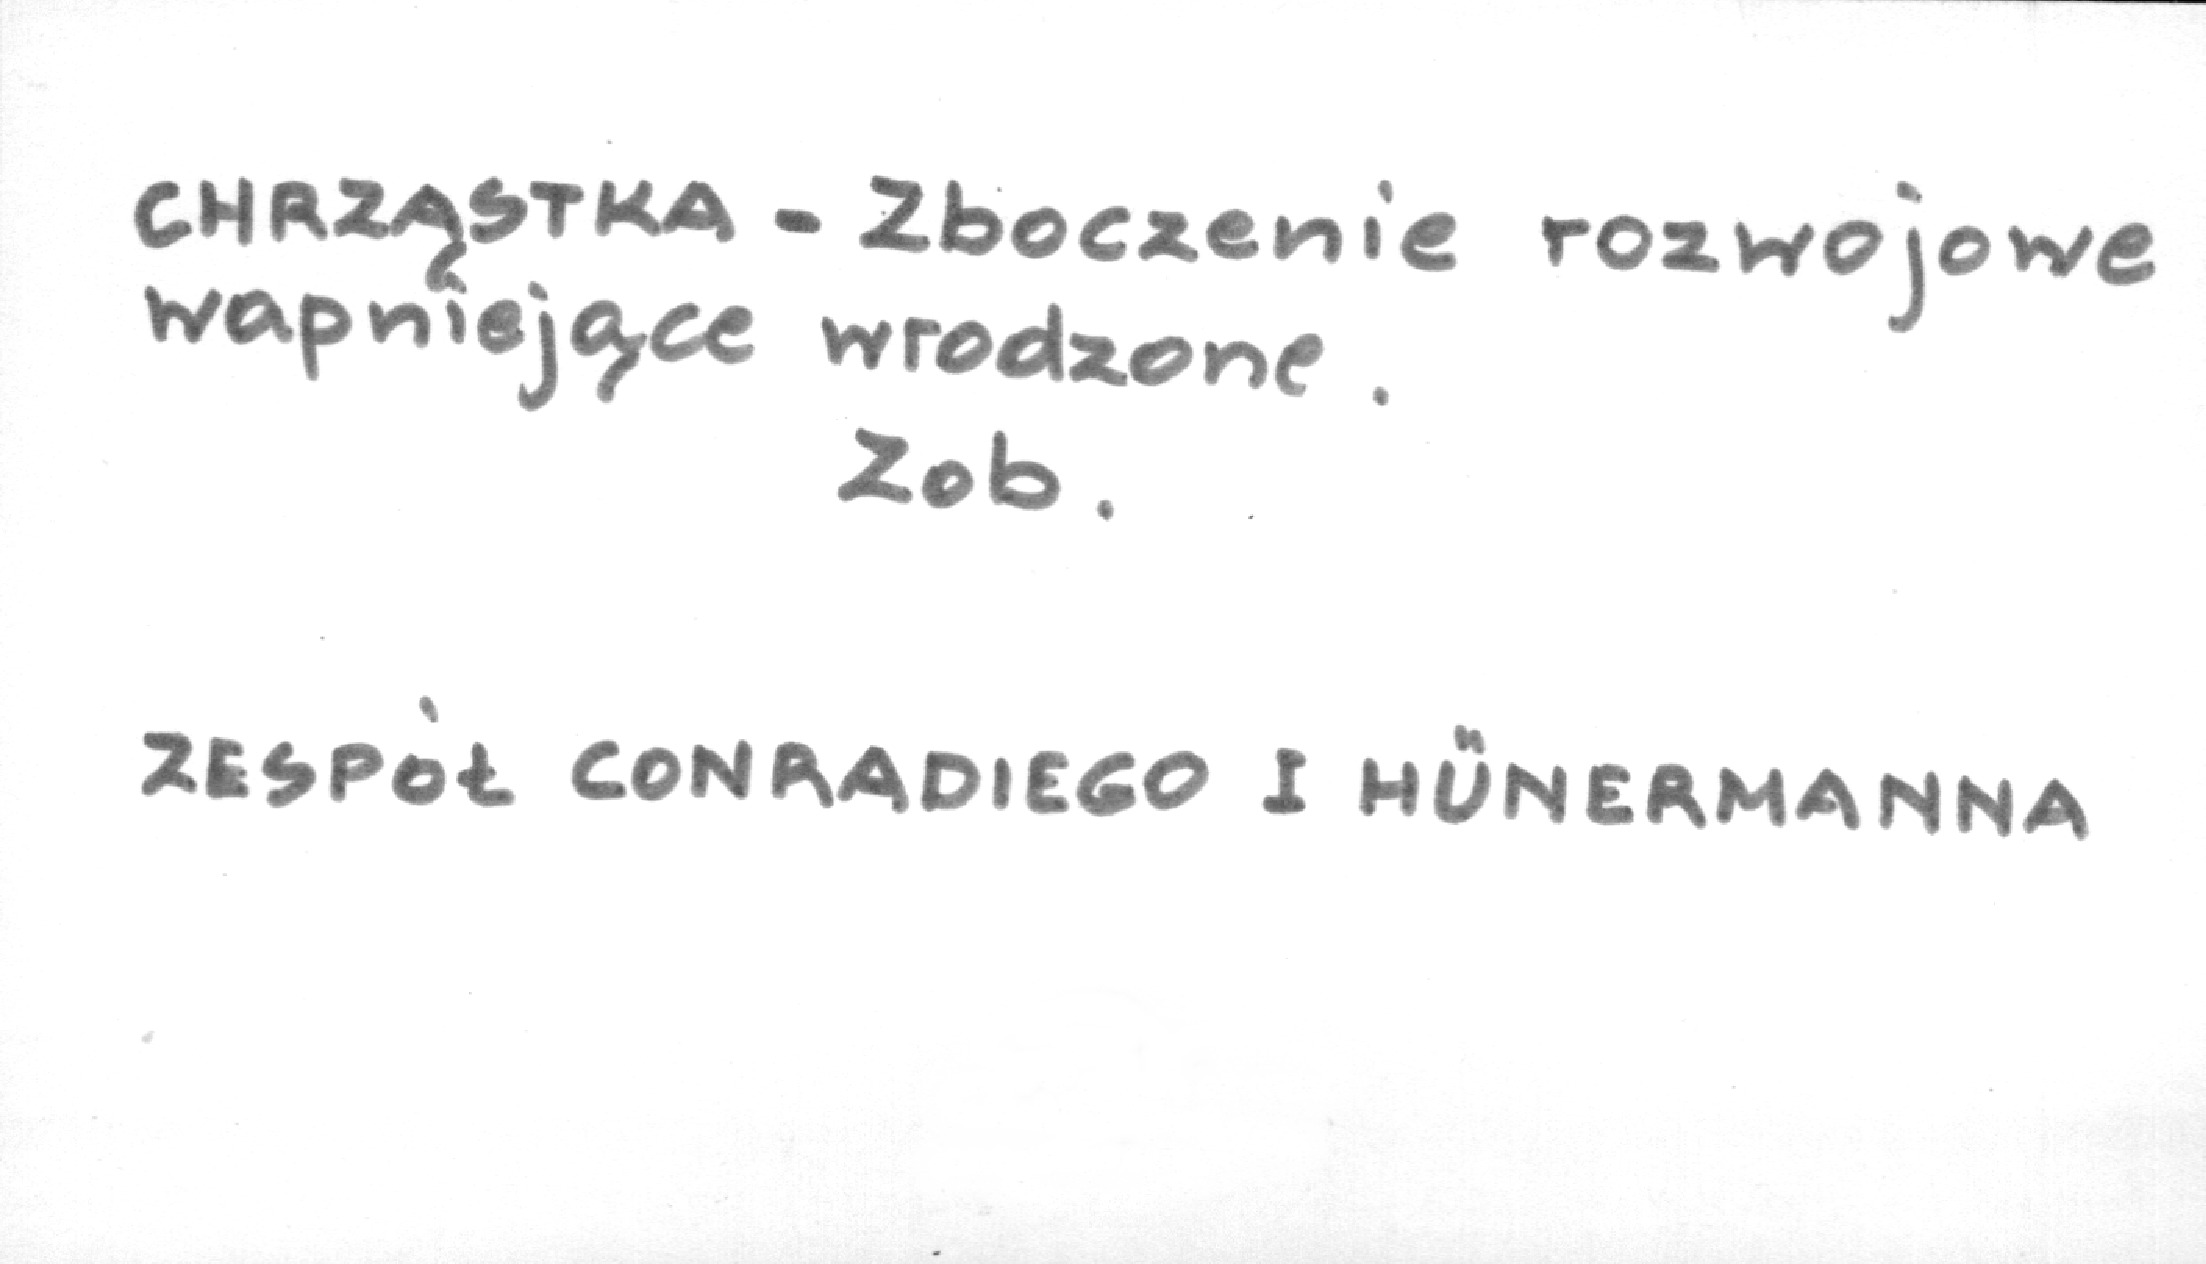 CHRZĄSTKA - Zboczenie rozwojowe
wapniejące wrodzone.
Zob.
ZESPÓŁ CONRADIEGO I HÜNERMANNA